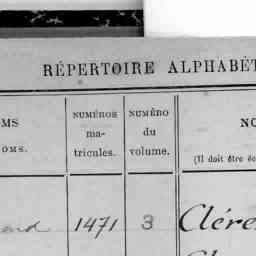 RÉPERTOIRE ALPHABÉT
OMS
OMS.
NUMÉROS
ma-
tricules.
NUMÉRO
du
volume.
NO
(Il doit être éc
1471
3
Clére